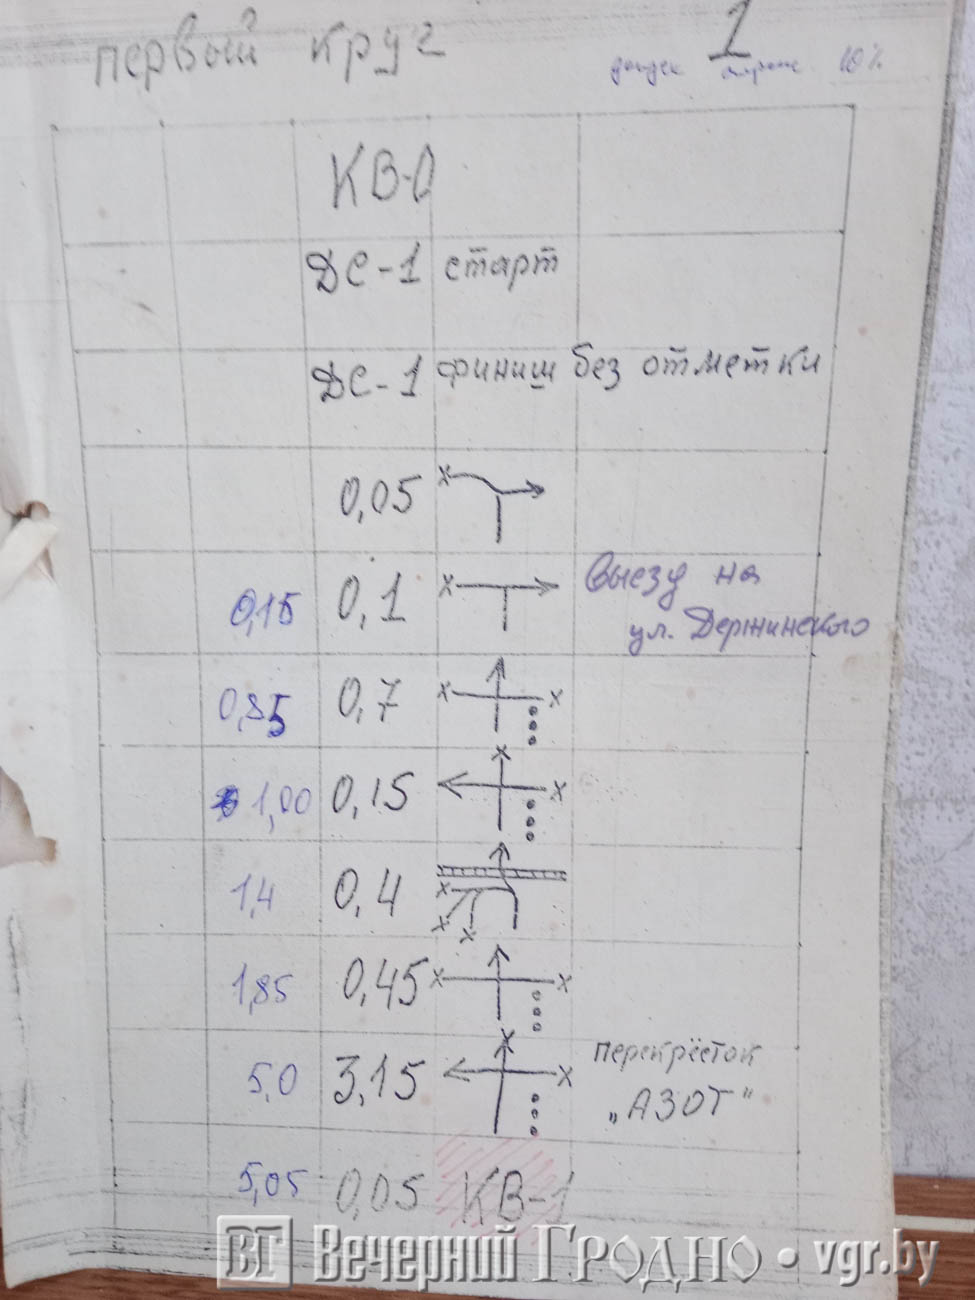 первый круг
1
10%
КВ-0
ДС-1 старт
ДС-1 финиш без отметки
0,05
0,15 0,1 Выезд на
ул. Держинского
0,85 0,7
1,00 0,15
1,4 0,4
1,85 0,45
5,0 3,15 перекрёсток
„АЗОТ"
5,05 0,05 КВ-1
ВГ Вечерний Гродно • vgr.by